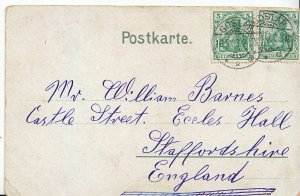 Postkarte.
5 5
Mr. William Barnes
Castle Street. Eccles Hall
Staffordshire
England